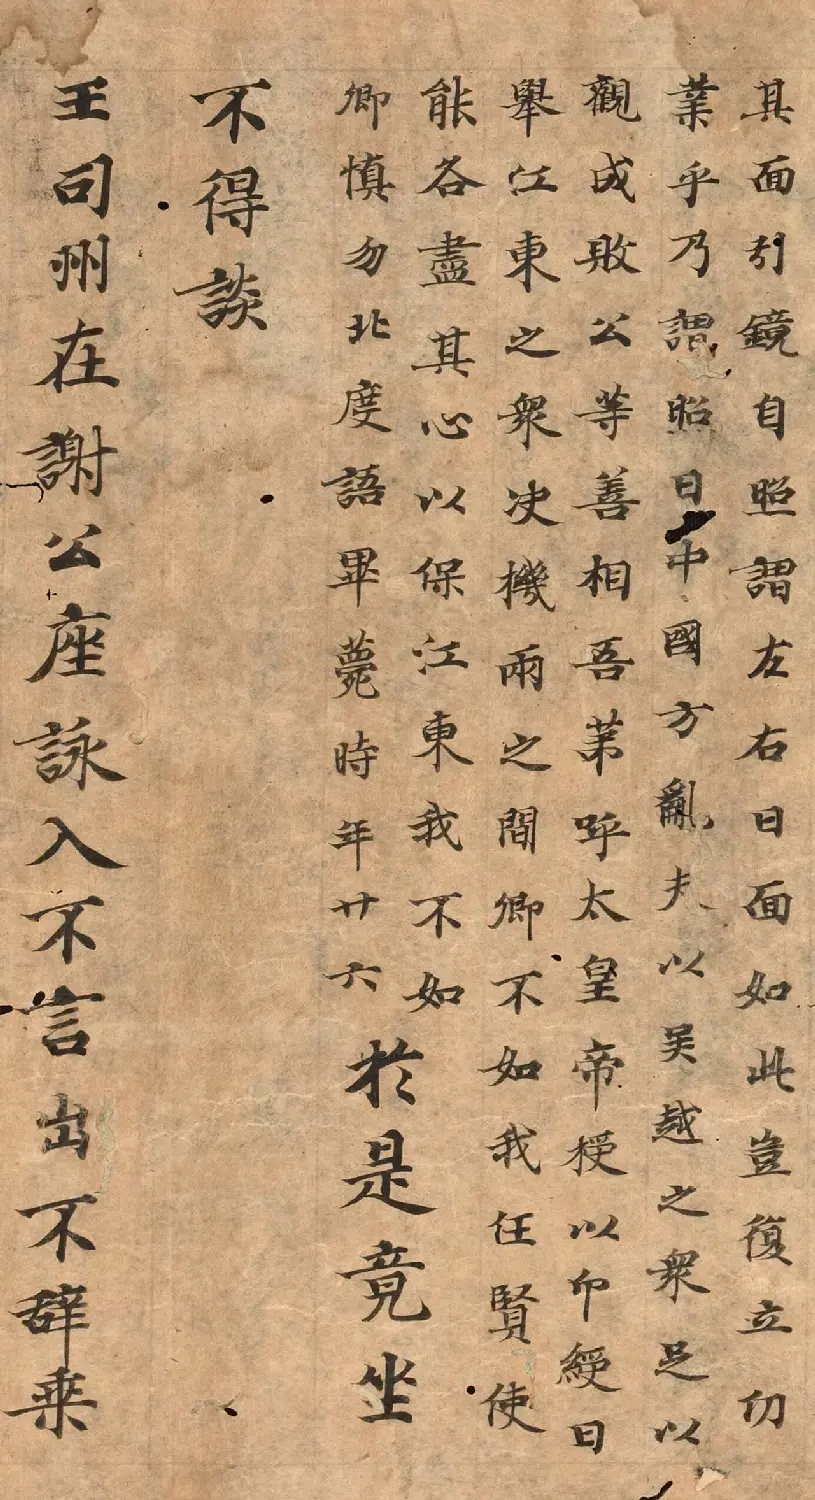 其面引鏡自照謂左右曰面如此豈復立功
業乎乃謂昭曰中國方亂夫以吴越之衆足以
觀成敗公等善相吾苐呼太皇帝授以印綬曰
舉江東之衆决機兩之間卿不如我任賢使
能各盡其心以保江東我不如
卿慎勿北度語畢薨時年廿六於是竟坐
不得談
王司州在謝公座詠入不言出不辞乗